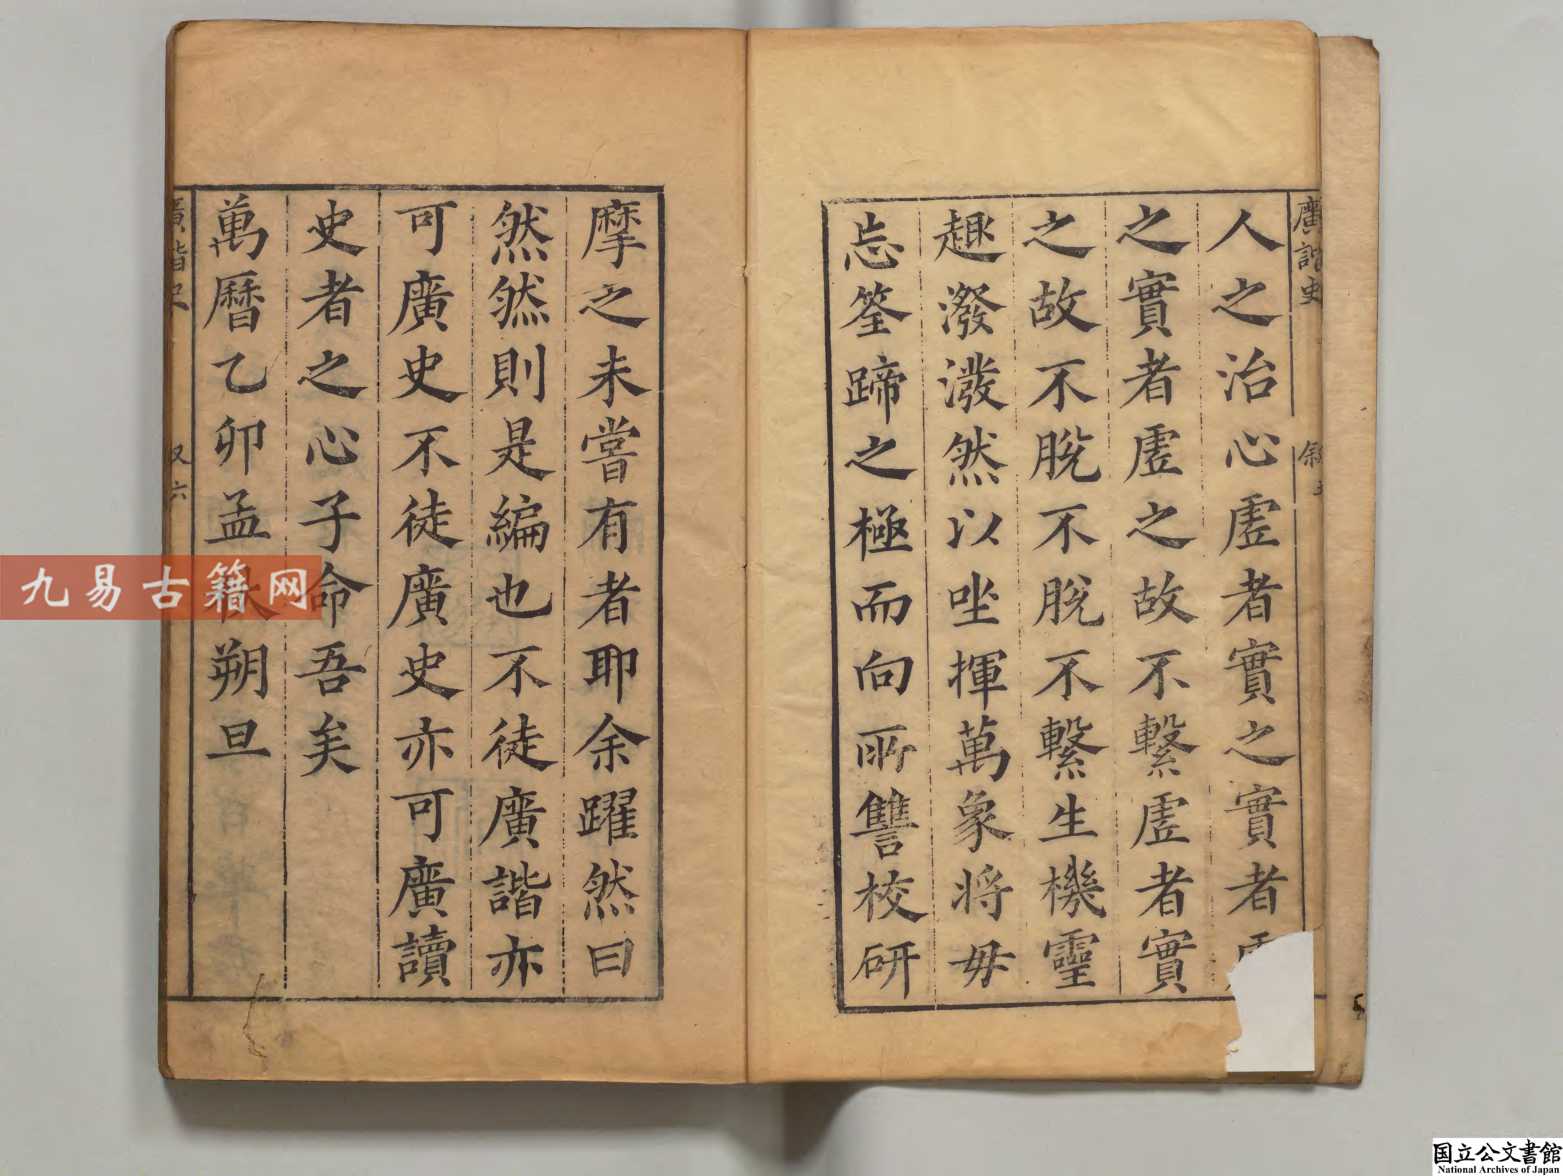 廣諧史
敘
人之治心虛者實之實者
之實者虛之故不繫虛者實
之故不脫不脫不繫生機靈
趣潑潑然以坐揮萬象將毋
忘筌蹄之極而向所讐校研
摩之未嘗有者耶余躍然曰
然然則是編也不徒廣諧亦
可廣史不徒廣史亦可廣讀
史者之心子命吾矣
萬曆乙卯孟
朔旦
廣諧史
又六
九易古籍网
国立公文書館
National Archives of Japan